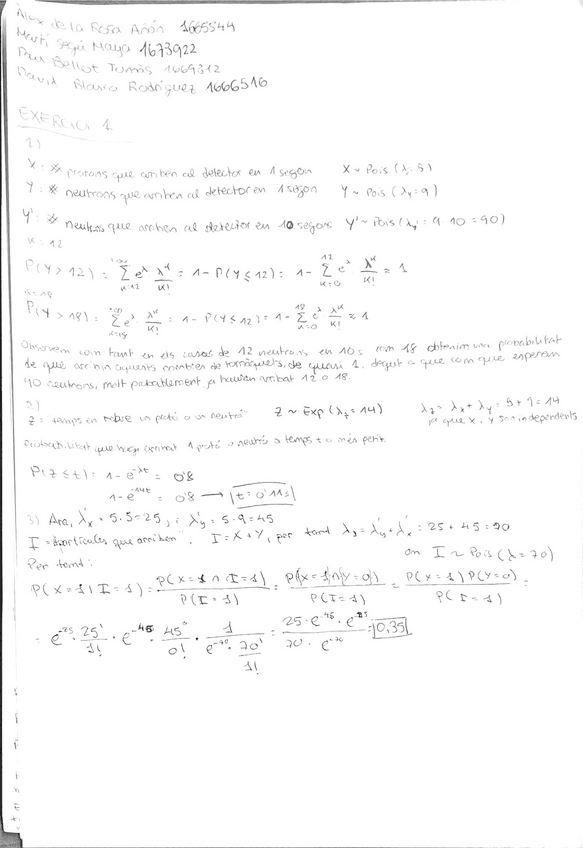 Àlex de la Rosa Añón 1665544
Martí Seguí Maya 1673922
Pau Bellot Tomàs 1669312
David Blanco Rodríguez 1666516
EXERCICI 1
1)
X: # protons que arriben al detector en 1 segon X ~ Pois (λ = 5)
Y: # neutrons que arriben al detector en 1 segon Y ~ Pois (λy = 9)
Y': # neutrons que arriben al detector en 10 segons Y' ~ Pois (λy' = 9·10 = 90)
K = 12
P(Y > 12) = Σ_{K=12}^{+∞} e^λ λ^K/K! = 1 - P(Y ≤ 12) = 1 - Σ_{K=0}^{12} e^λ λ^K/K! ≈ 1
K = 18
P(Y > 18) = Σ_{K=18}^{+∞} e^λ λ^K/K! = 1 - P(Y ≤ 12) = 1 - Σ_{K=0}^{18} e^λ λ^K/K! ≈ 1
Observem com tant en els casos de 12 neutrons en 10s com 18 obtenim una probabilitat
de que arribin aquests nombres de de quasi 1. degut a que com que esperem
90 neutrons, molt probablement ja hauran arribat 12 o 18.
2)
Z = temps en rebre un protó o un neutró Z ~ Exp (λz = 14) λz = λx + λy = 5 + 9 = 14
ja que X, Y son independents
Probabilitat que hagi arribat 1 protó o neutró a temps t o més petit.
P(Z ≤ t) = 1 - e^{-λt} = 0'8
1 - e^{-14t} = 0'8 → t = 0'11s
3) Ara, λ'x = 5·5 = 25, i λ'y = 5·9 = 45
I = "#partícules que arriben". I = X + Y, per tant λI = λ'y + λ'x = 25 + 45 = 70
on I ~ Pois (λ = 70)
Per tant:
P(X = 1 | I = 1) = P(X = 1 ∩ I = 1)/P(I = 1) = P(X = 1 ∩ Y = 0)/P(I = 1) = P(X = 1) P(Y = 0)/P(I = 1) =
= e^{-25} · 25^1/1! · e^{-45} · 45^0/0! · 1/(e^{-70} · 70^1/1!) = 25 · e^{-45} · e^{-25}/(70 · e^{-70}) = 0,35